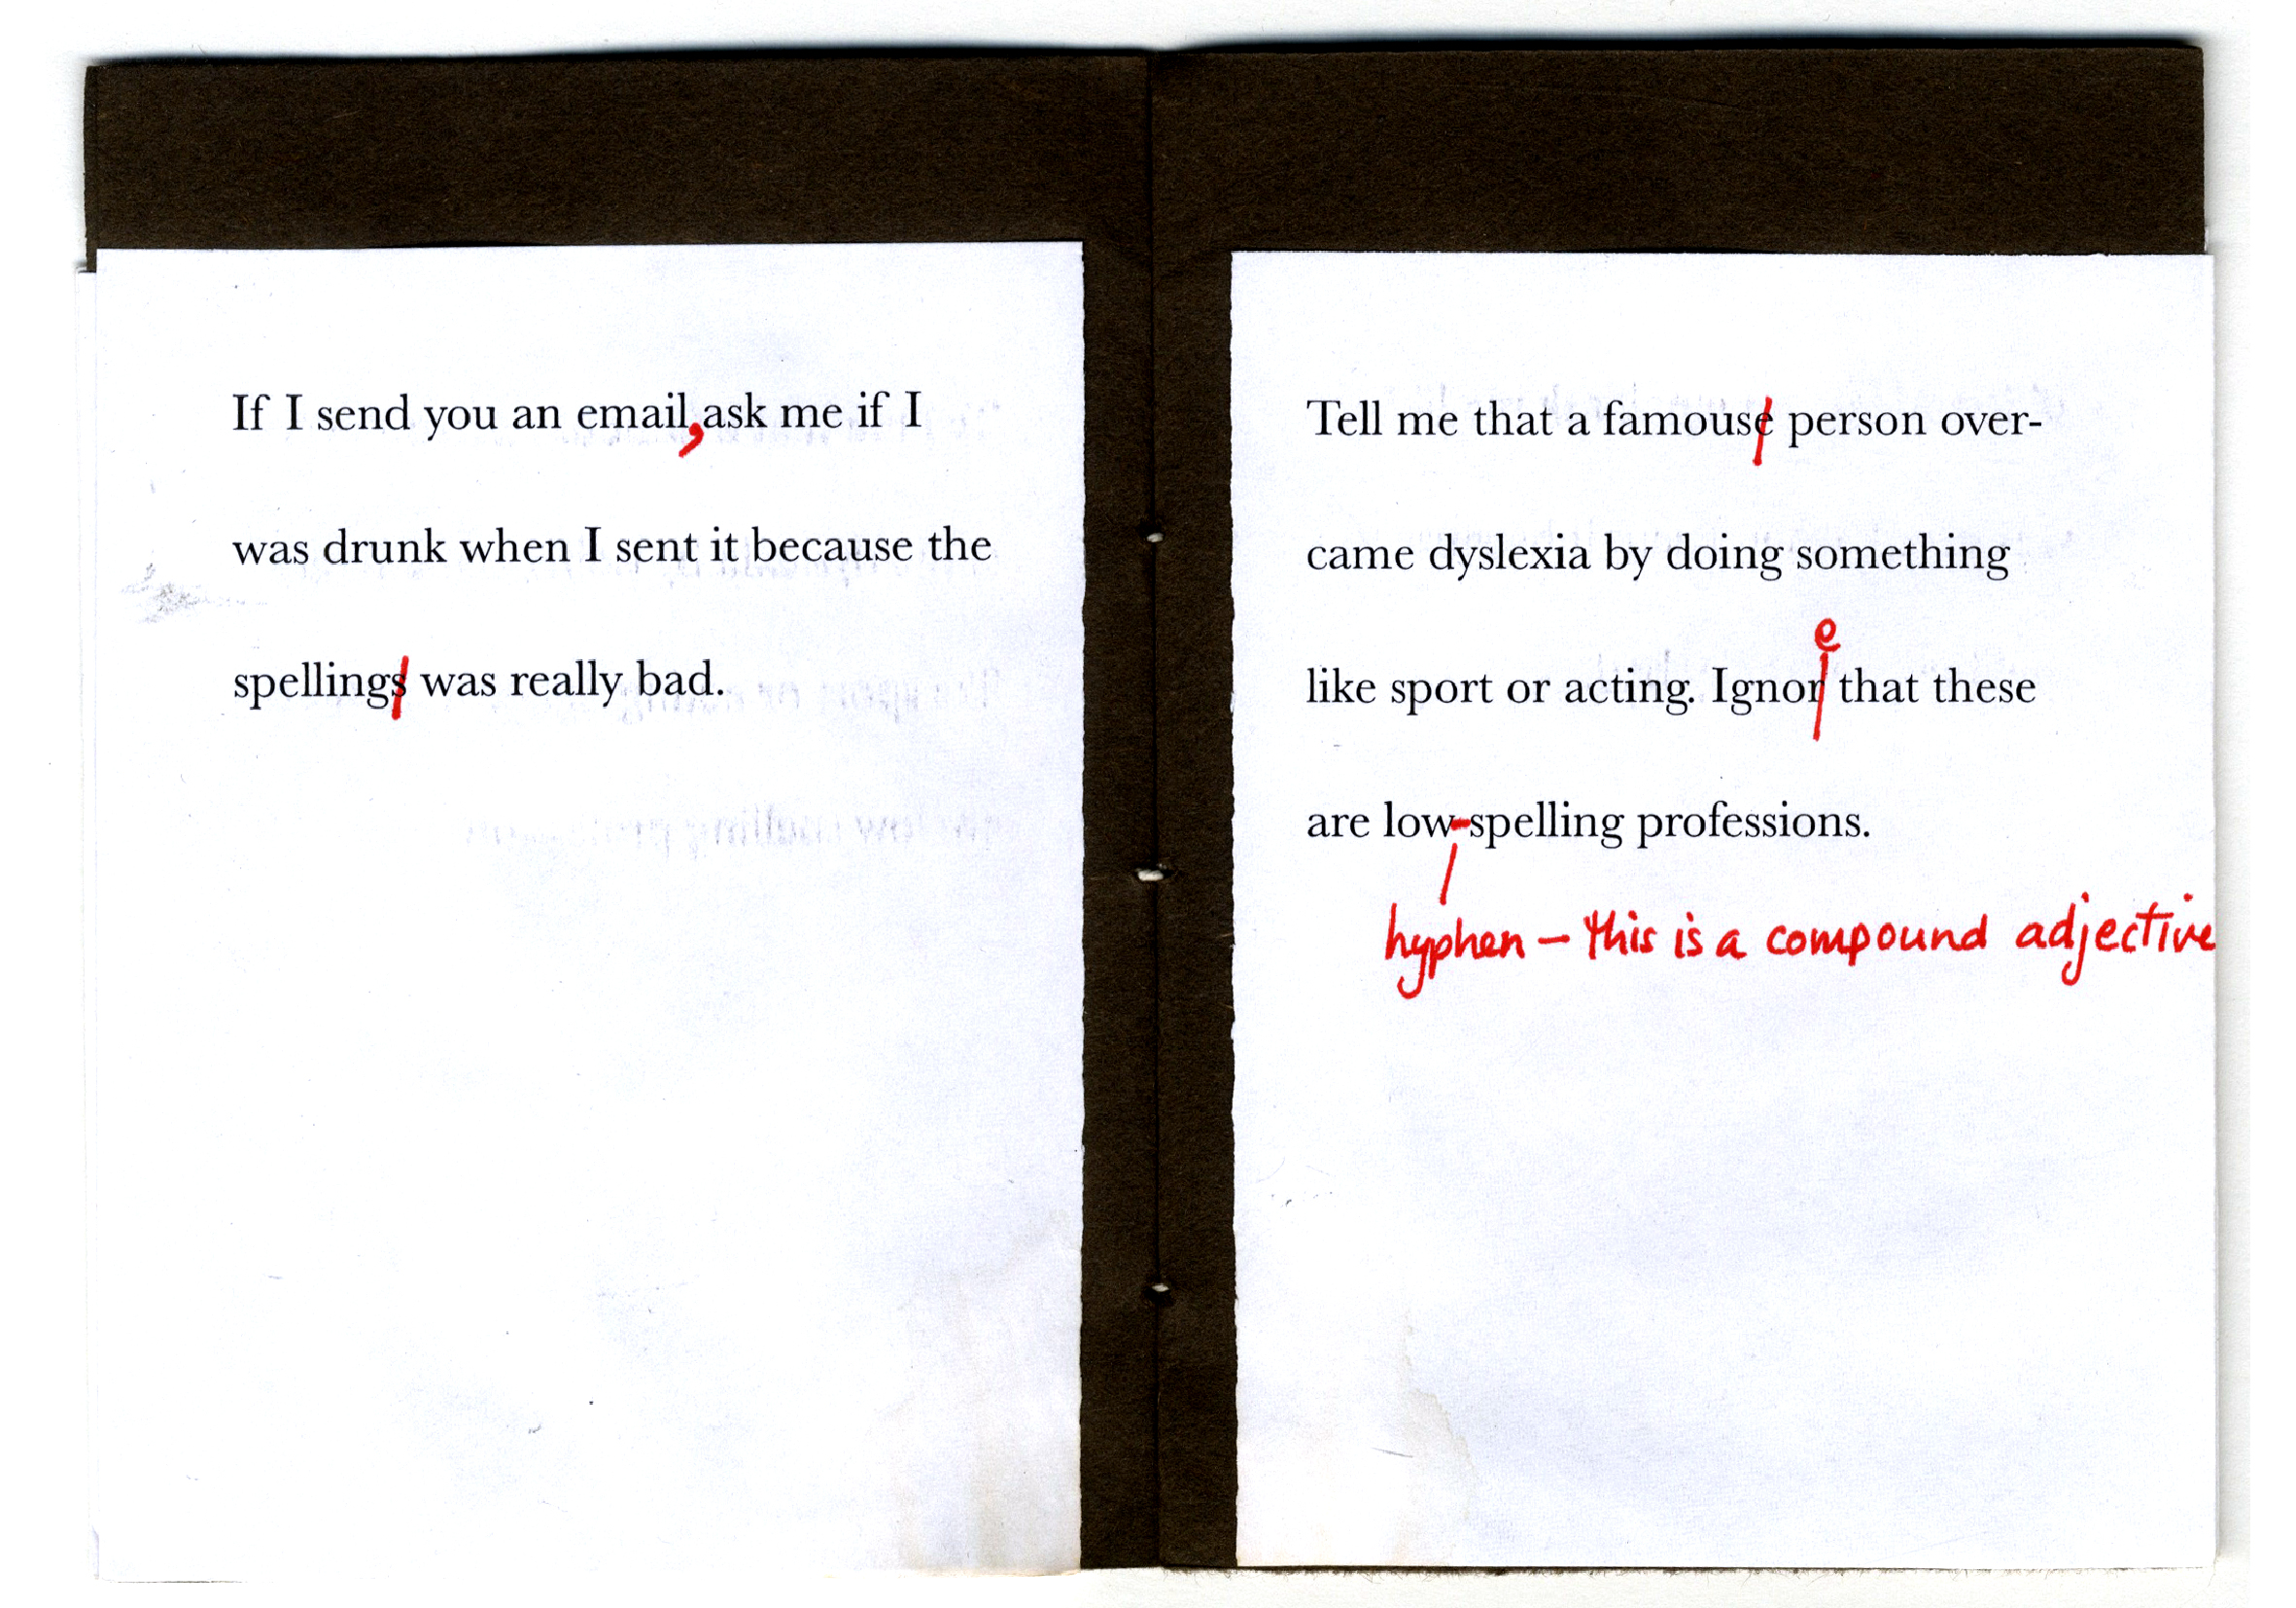 If I send you an email, ask me if I
was drunk when I sent it because the
spellings was really bad.
Tell me that a famouse person over-
came dyslexia by doing something
e
like sport or acting. Ignor that these
are low-spelling professions.
hyphen – this is a compound adjective